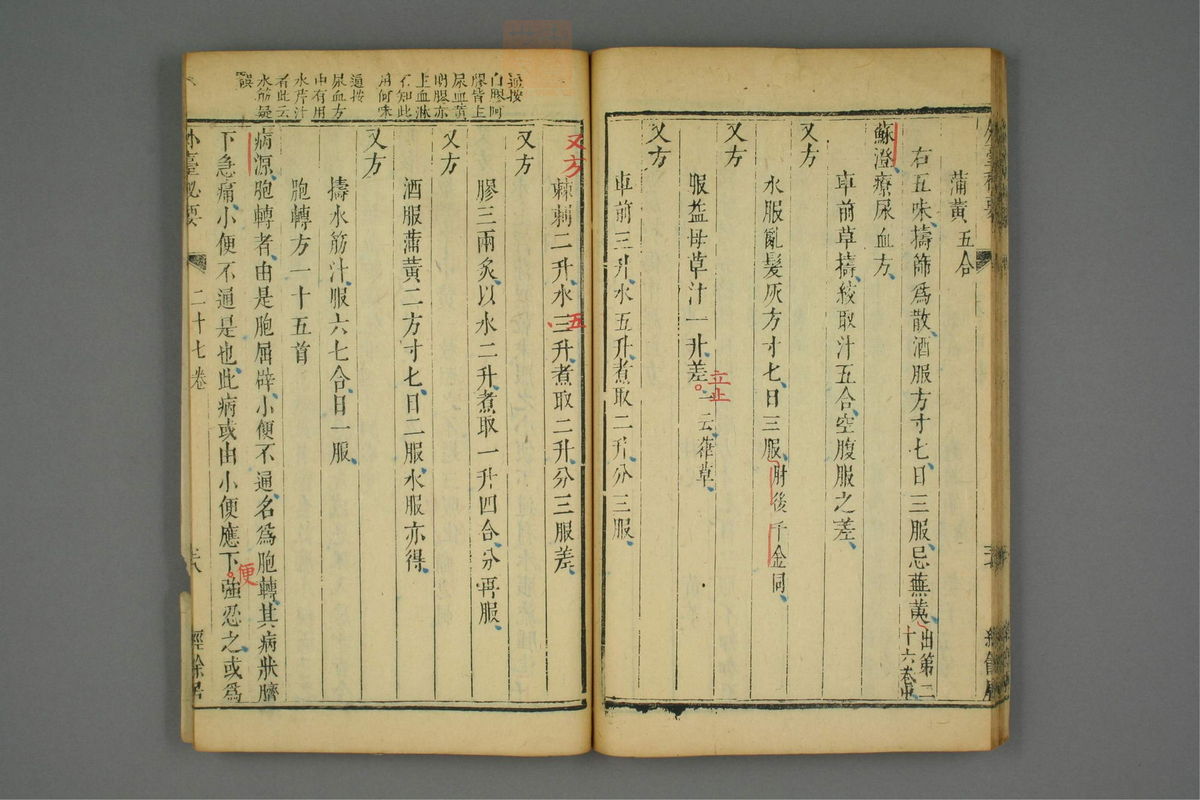 蒲黃五合
右五味擣篩爲散酒服方寸匕日三服忌蕪荑出第二十六卷中
蘇澄療尿血方
車前草擣絞取汁五合空腹服之差
又方
水服亂髮灰方寸匕日三服肘後千金同
又方
服益母草汁一升差立止一云葎草
又方
車前三升水五升煮取二升分三服
又方
棘刺二升水三升煮取二升分三服差
五
又方
膠三兩炙以水二升煮取一升四合分再服
又方
酒服蒲黃二方寸匕日二服水服亦得
又方
擣水筋汁服六七合日一服
胞轉方一十五首
病源胞轉者由是胞屈辟小便不通名爲胞轉其病狀臍
下急痛小便不通是也此病或由小便應下便強忍之或爲
外臺秘要
二十七卷
經餘居
逈按
白膠阿
膠皆上
尿血黃
明膠亦
上血淋
不知此
用何味
逈按
尿血方
中有用
水芹汁
者此云
水筋疑
誤